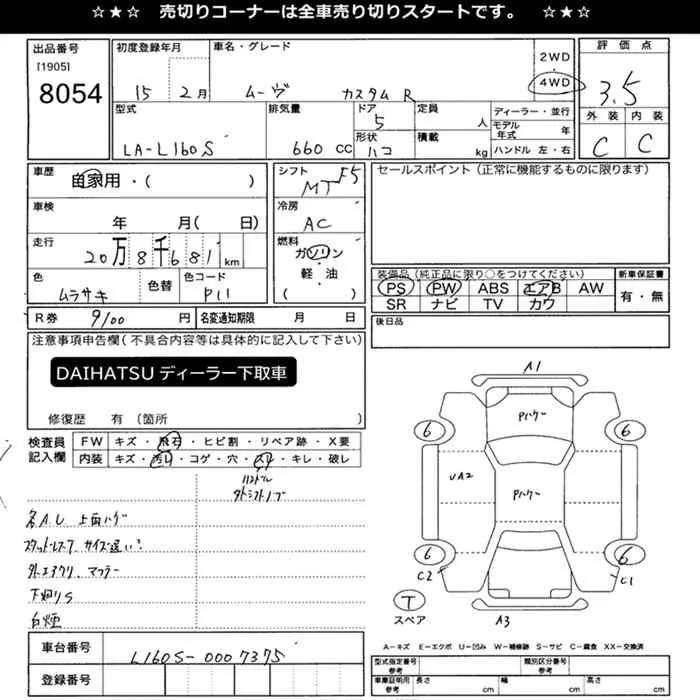 ☆★☆ 売切りコーナーは全車売り切りスタートです。 ☆★☆
出品番号
[1905]
8054
初度登録年月
15 2月
車名・グレード
ムーヴ カスタム R
2WD
4WD
評価点
3.5
外装 内装
C C
型式
LA-L160S
排気量
660 CC
ドア
5
形状
ハコ
定員
人
積載
kg
ディーラー・並行
モデル年式 年
ハンドル 左・右
車歴
自家用・( )
シフト
MT F5
セールスポイント (正常に機能するものに限ります)
車検
年 月( 日)
冷房
AC
走行
20万8千681 km
燃料
ガソリン
・
軽・油
( )
色
ムラサキ
色替
色コード
P11
装備品(純正品に限り○をつけてください)
新車保証書
PS PW ABS エアB AW
SR ナビ TV カワ
有・無
R券 9100 円
名変通知期限 月 日
後日品
注意事項申告欄(不具合内容等は具体的に記入して下さい)
DAIHATSU ディーラー下取車
修復歴 有 〔箇所
検査員
記入欄
FW キズ・飛石・ヒビ割・リペア跡・X要
内装 キズ・汚レ・コゲ・穴・スレ・キレ・破レ
ハンドル
外シフトノブ
各A.U 上面ハゲ
スタッドレス7 サイズ違い?
外エアクリ、マフラー
下廻りS
白煙
A1
Pハゲ
6 6
UA2
Pハゲ
6 6
C2 C1
T
スペア
A3
A-キズ E-エクボ U-凹み W-補修跡 S-サビ C-腐食 XX-交換済
車台番号
L160S-0007375
登録番号
型式指定番号
参考
類別区分番号
参考
車庫証明用
参考
長さ cm 幅 cm 高さ cm